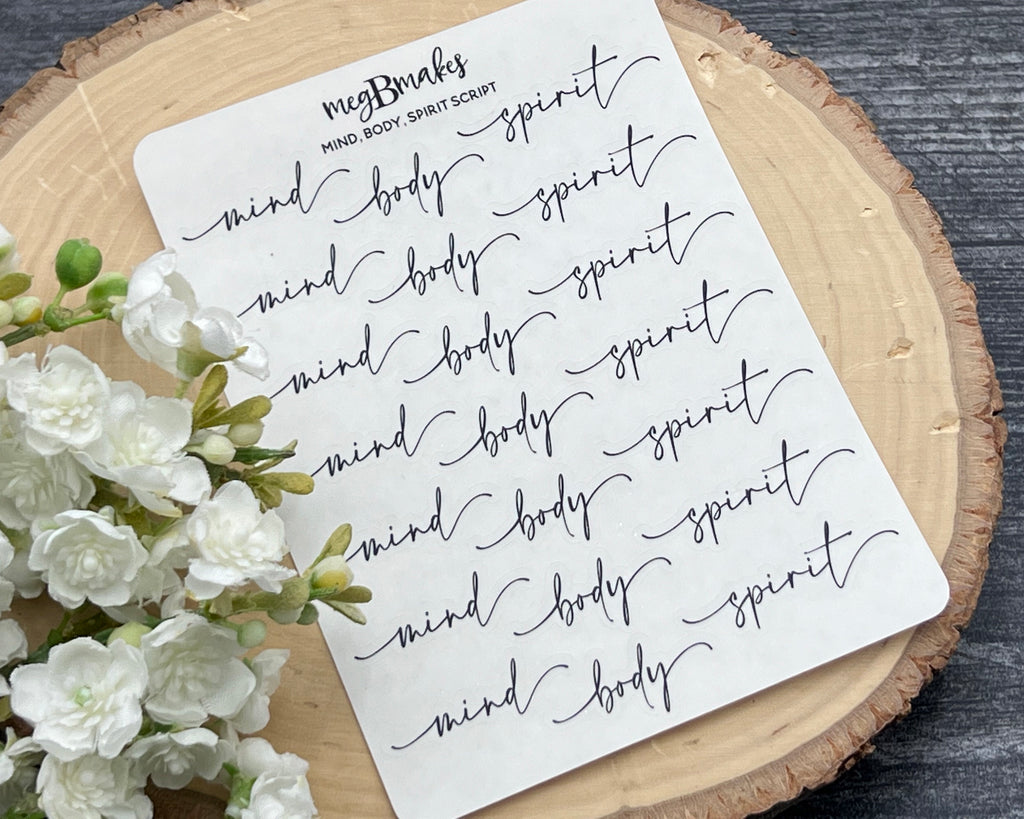 megBmakes
MIND, BODY, SPIRIT SCRIPT
mind body spirit
mind body spirit
mind body spirit
mind body spirit
mind body spirit
mind body spirit
mind body spirit